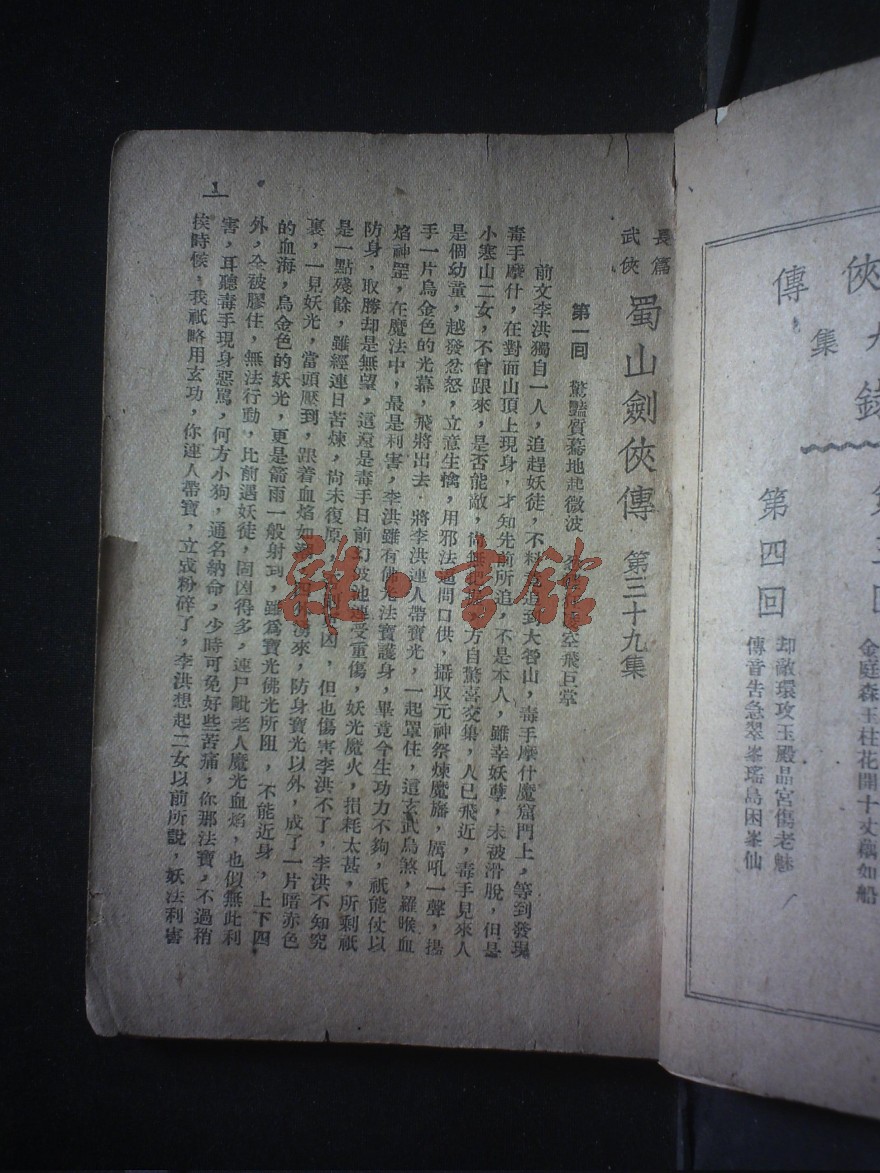 俠九錄
傳集
第三回
金庭森玉柱花開十丈藕如船
第四回
却敵環攻玉殿晶宮傷老魅
傳音告急翠峯瑤島困羣仙
長篇
武俠
蜀山劍俠傳 第三十九集
第一回 驚豔質驀地起微波 空飛巨掌
前文李洪獨自一人，追趕妖徒，不料竟追到大咎山，毒手摩什魔窟門上，等到發現
毒手摩什，在對面山頂上現身，才知先前所追，不是本人，雖幸妖孽，未被滑脫，但是
小寒山二女，不曾跟來，是否能敵，尚無把 方自驚喜交集，人已飛近，毒手見來人
是個幼童，越發忿怒，立意生擒，用邪法逼問口供，攝取元神祭煉魔旛，厲吼一聲，揚
手一片烏金色的光幕，飛將出去．將李洪連人帶寶光，一起罩住，這玄武烏煞，羅睺血
焰神罡，在魔法中，最是利害，李洪雖有佛光法寶護身，畢竟今生功力不夠，祇能仗以
防身，取勝却是無望，這還是毒手日前幻波池 受重傷，妖光魔火，損耗太甚，所剩祇
是一點殘餘，雖經連日苦煉，尚未復原， 凶，但也傷害李洪不了，李洪不知究
裏，一見妖光，當頭壓到，跟着血焰如 湧來，防身寶光以外，成了一片暗赤色
的血海，烏金色的妖光，更是箭雨一般射到，雖爲寶光佛光所阻，不能近身，上下四
外，全被膠住，無法行動，比前遇妖徒，固凶得多，連尸毗老人魔光血焰，也似無此利
害，耳聽毒手現身惡罵，何方小狗，通名納命，少時可免好些苦痛，你那法寶，不過稍
挨時候，我祇略用玄功，你連人帶寶，立成粉碎了，李洪想起二女以前所說，妖法利害
1
雜·書館